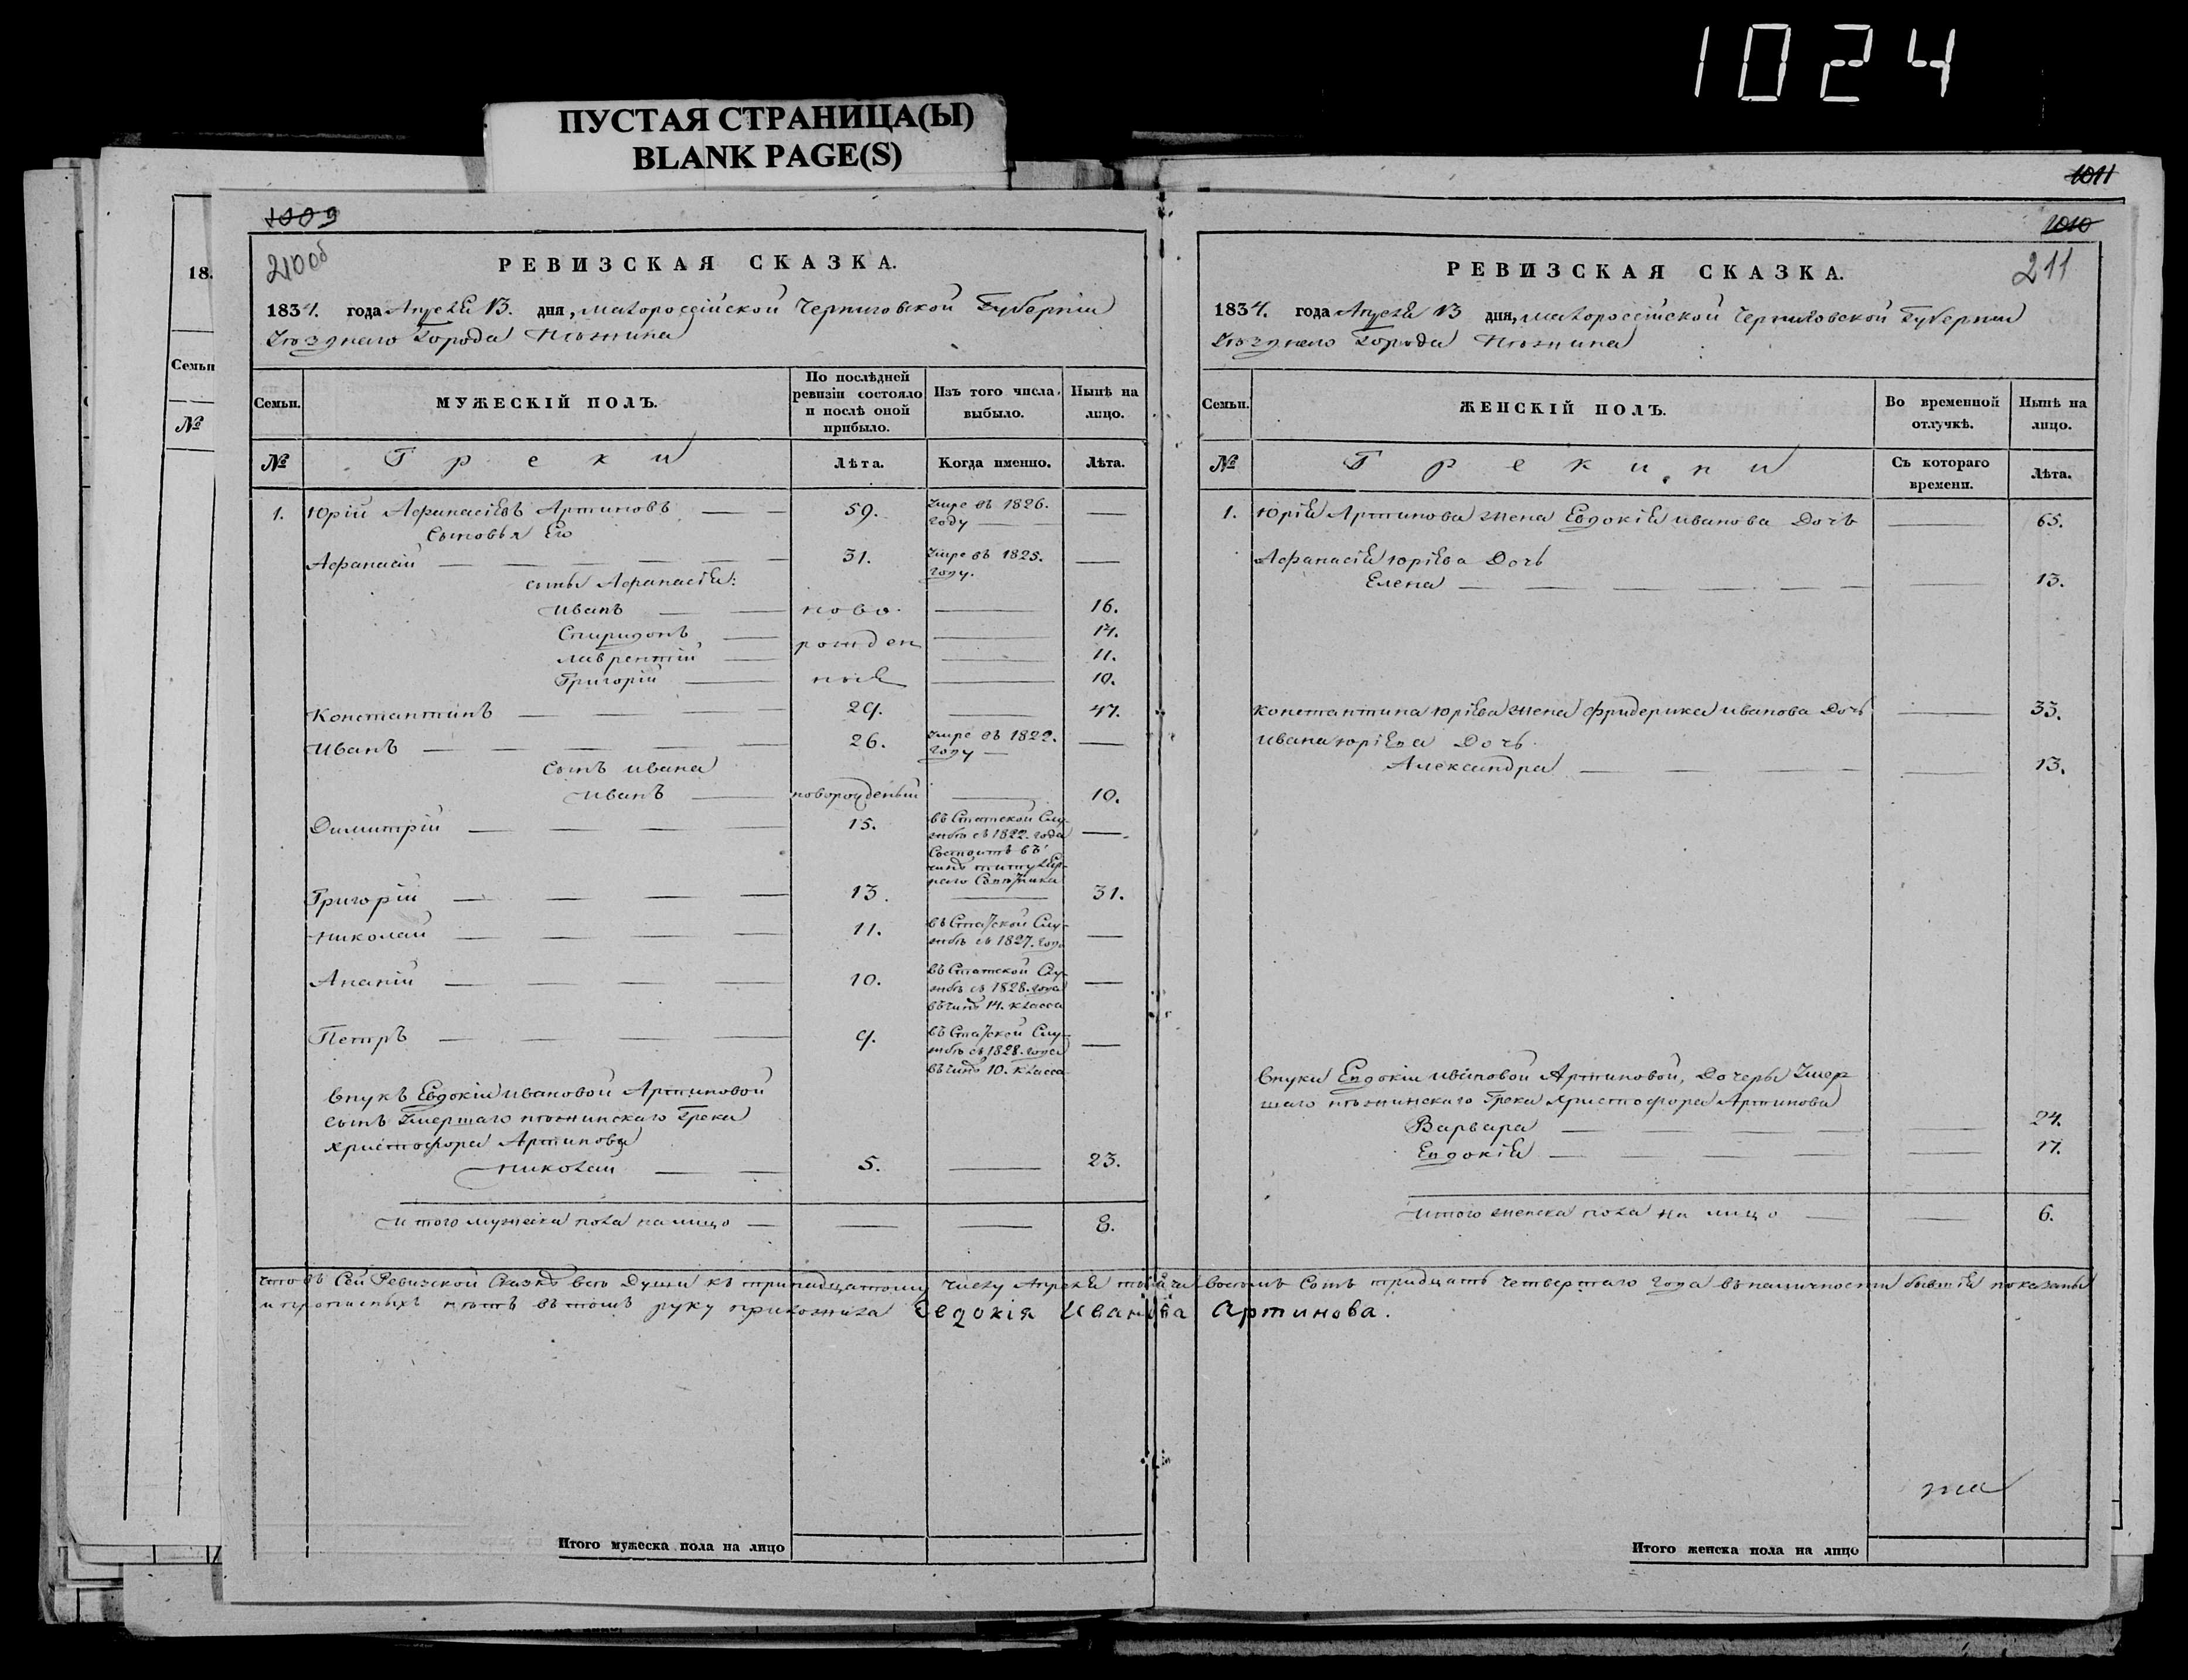 1024
ПУСТАЯ СТРАНИЦА(Ы)
BLANK PAGE(S)
18.
Семьи
№
1009
210об
РЕВИЗСКАЯ СКАЗКА.
1834. года Апреля 13. дня, малороссійской Черниговской Губерніи
Уѣзднаго Города Нѣжина
Семьи.
МУЖЕСКІЙ ПОЛЪ.
По послѣдней ревизіи состояло и послѣ оной прибыло.
Изъ того числа выбыло.
Нынѣ на лицо.
№
Греки
Лѣта.
Когда именно.
Лѣта.
1. Юрій Афанасіевъ Артиновъ — — 59. умре въ 1826. году —
Сыновья Его
Афанасій — 31. умре въ 1825. году. —
сыны Афанасія:
Иванъ — ново- — 16.
Спиридонъ — рожден — 14.
Лаврентій — — 11.
Григорій — ные — 10.
Константинъ — 29. — 47.
Иванъ — 26. умре въ 1822. году — —
Сынъ ивана
Иванъ — новорожденый — 10.
Димитрій — 15. въ Статской Службѣ съ 1822. года Состоитъ въ чинѣ титулярнаго Совѣтника —
Григорій — 13. — 31.
Николай — 11. въ Статской Службѣ съ 1827. года —
Ананій — 10. въ Статской Службѣ съ 1828. года въ чинѣ 14. класса —
Петръ — 9. въ Статской Службѣ съ 1828. года въ чинѣ 10. класса —
Внукъ Евдокіи ивановой Артиновой
сынъ Умершаго нѣжинскаго Грека
Христофора Артинова
Николай — 5. — 23.
Итого мужеска пола на лицо — — — 8.
Что въ Сей Ревизской Сказкѣ всѣ Души къ тринадцатому числу Апреля тысяча восемь Сотъ тридцать четвертаго года въ наличности бывшія показаны
и прописныхъ нѣтъ въ томъ руку приложила Евдокія Иванова Артинова.
Итого мужеска пола на лицо
1011
1010
211
РЕВИЗСКАЯ СКАЗКА.
1834. года Апреля 13 дня, малороссійской Черниговской Губерніи
Уѣзднаго Города Нѣжина
Семьи.
ЖЕНСКІЙ ПОЛЪ.
Во временной отлучкѣ.
Нынѣ на лицо.
№
Грекини
Съ котораго времени.
Лѣта.
1. Юрія Артинова жена Евдокія иванова Дочь — 65.
Афанасія юріева Дочь
Елена — — 13.
Константина юріева жена фридерика иванова Дочь — 33.
Ивана юріева Дочь
Александра — — 13.
Внуки Евдокіи ивановой Артиновой, Дочеры Умер
шаго нѣжинскаго Грека Христофора Артинова
Варвара — — 24.
Евдокія — — 17.
Итого женска пола на лицо — — 6.
Итого женска пола на лицо